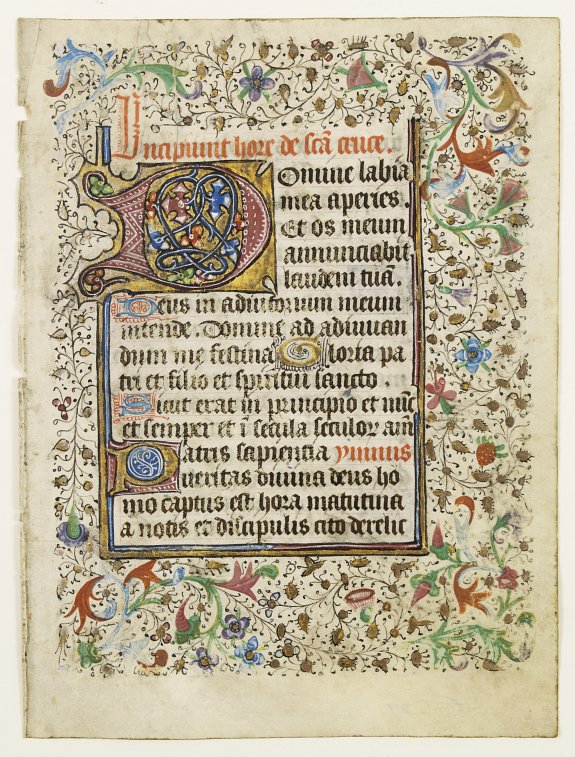 Incipiunt hore de scã cruce.
Domine labia
mea aperies.
Et os meum
annunciabit
laudem tuã.
Deus in adiutorium meum
intende. Domine ad adiuuan
dum me festina Gloria pa
tri et filio et spiritui sancto.
Sicut erat in principio et nũc
et semper et ĩ secula seculor am̃
Patris sapiencia ymnus
ueritas diuina deus ho
mo captus est hora matutina
a notis et discipulis cito derelic